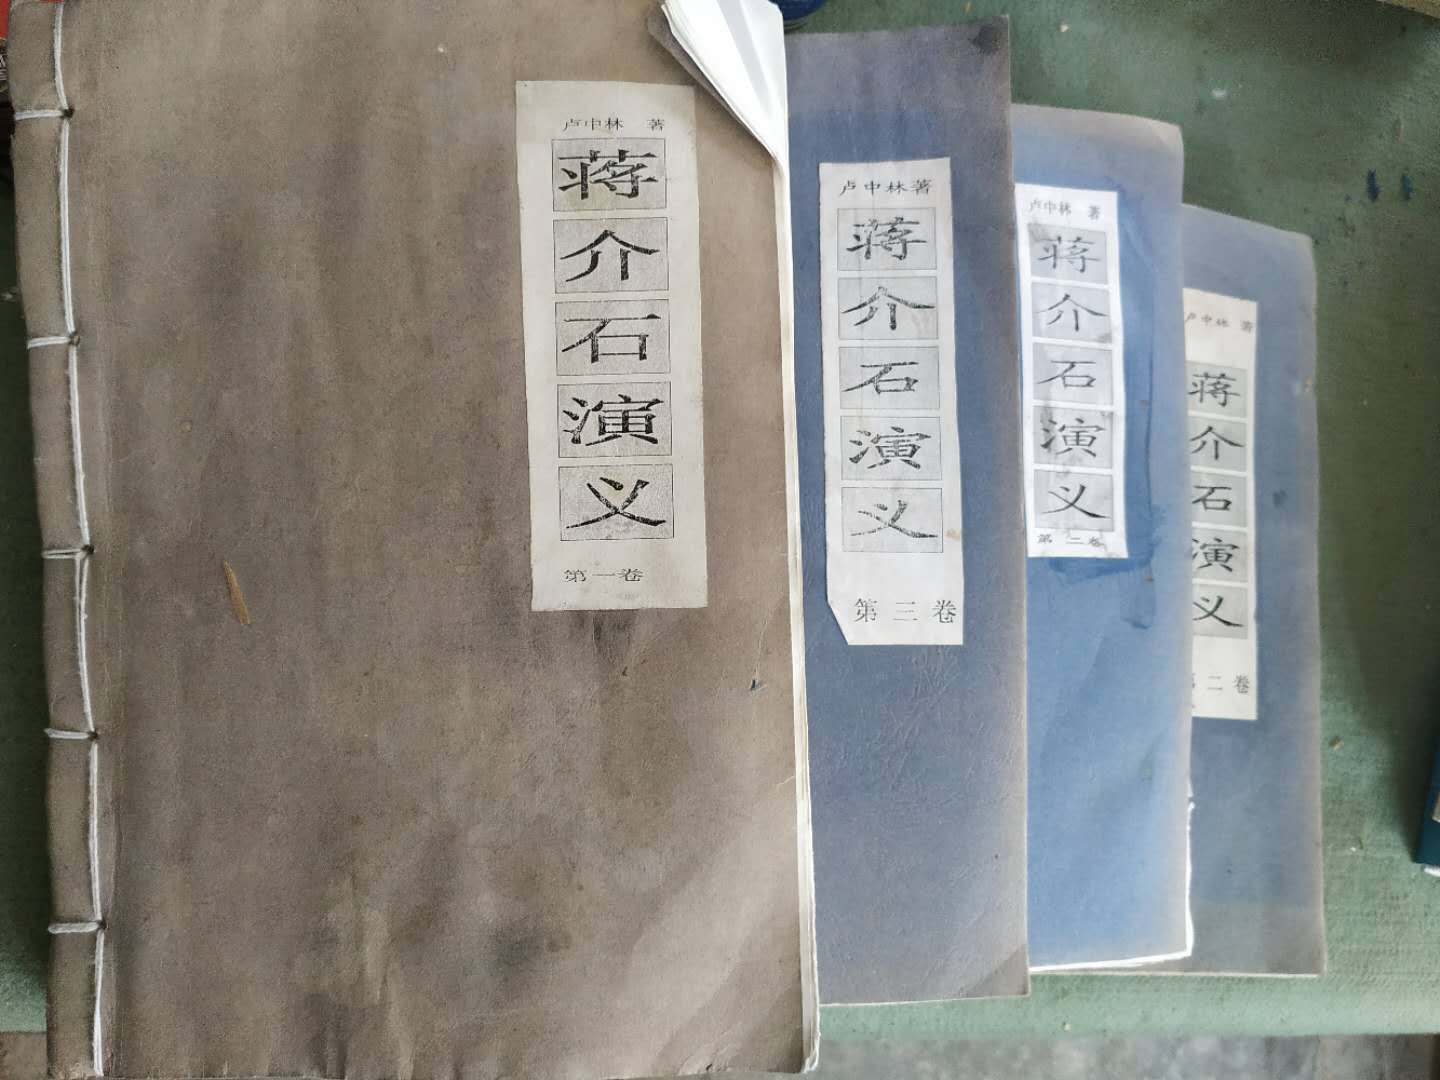 卢中林 著
蒋介石演义
第一卷
卢中林著
蒋介石演义
第三卷
卢中林 著
蒋介石演义
第二卷
卢中林 著
蒋介石演义
第二卷